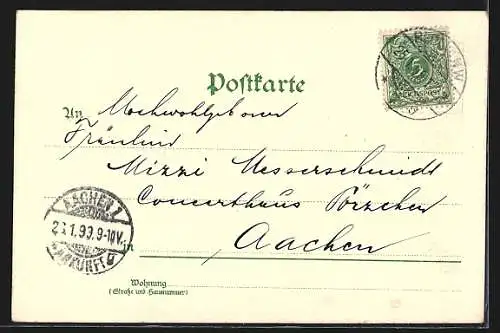 Postkarte
An Hochwohlgeboren
Fräulein
Mizzi Messerschmidt
Concerthaus Pörzchen
in Aachen
AACHEN 1
23.1.99.9-10V.
ANKUNFT
5
REICHSPOST
Wohnung
(Straße und Hausnummer)